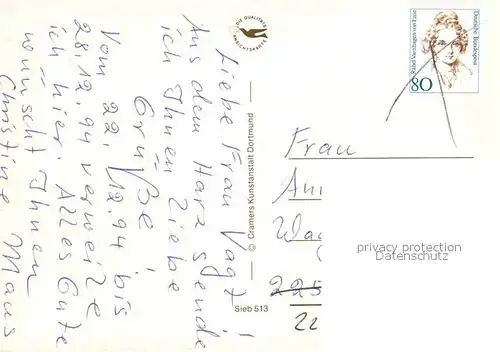 Liebe Frau Vagt!
Aus dem Harz sende
ich Ihnen liebe
Grüße.
Vom 22.12.94 bis
28.12.94 verweile
ich hier. Alles Gute
wünscht Ihnen
Christine Maus
DIE QUALITÄTS
ANSICHTSKARTE
© Cramers Kunstanstalt Dortmund
Sieb 513
Rahel Varnhagen von Ense
Deutsche Bundespost
80
Frau
privacy protection
VERITAS.COM
225
22